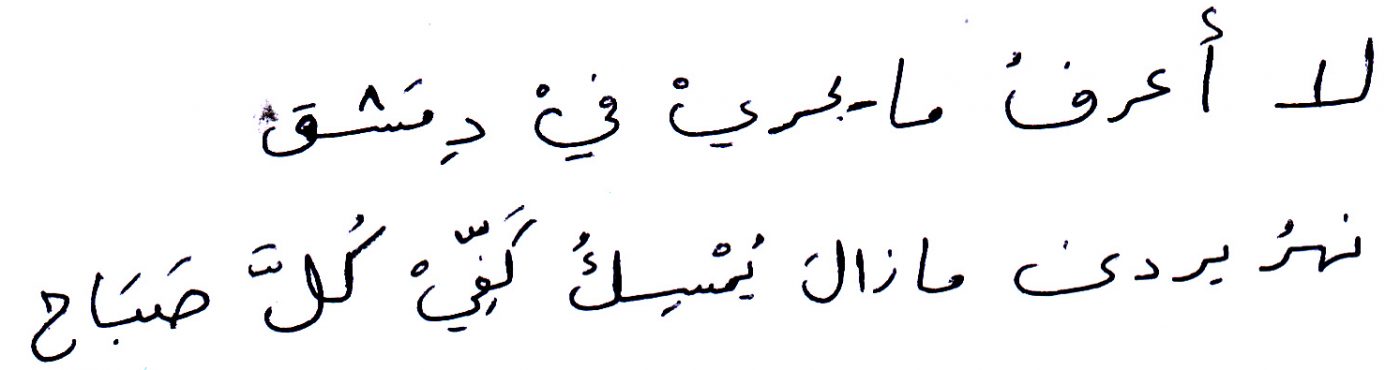 لا أعرفُ ما يجريْ فيْ دِمَشق
نهرُ بردى ما زالَ يُمْسِكُ كَفِّيْ كُلَّ صَبَاح